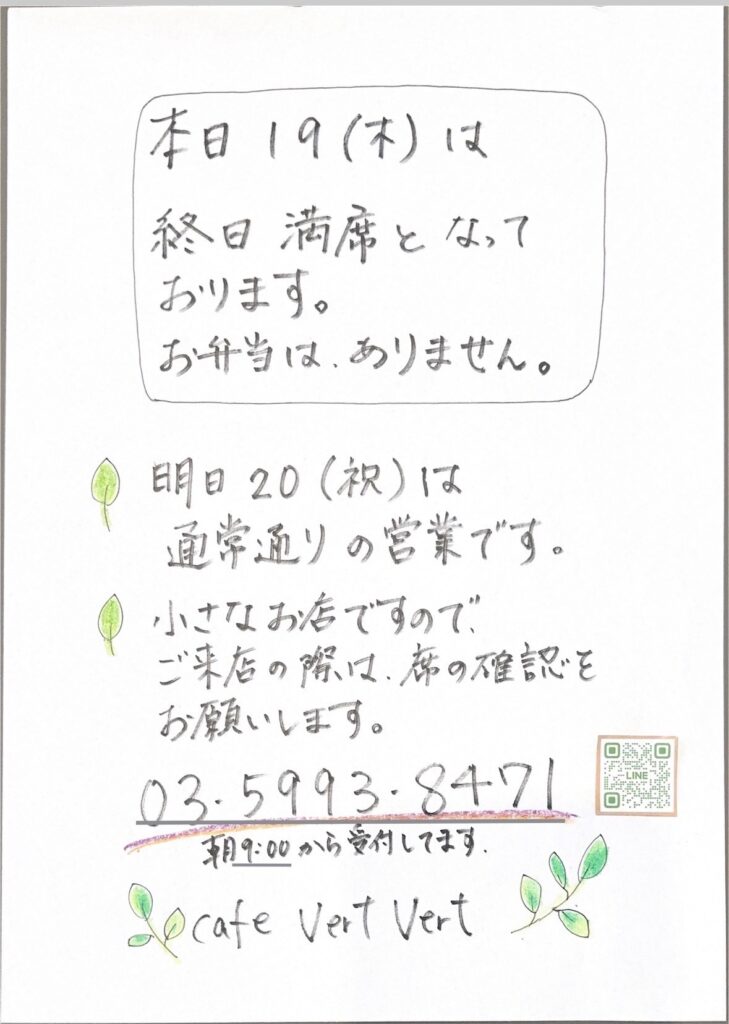 本日 19(木)は
終日 満席となって
おります。
お弁当は、ありません。
明日20(祝)は
通常通りの営業です。
小さなお店ですので、
ご来店の際は、席の確認を
お願いします。
03.5993.8471
LINE
朝9:00から受付してます.
cafe Vert Vert